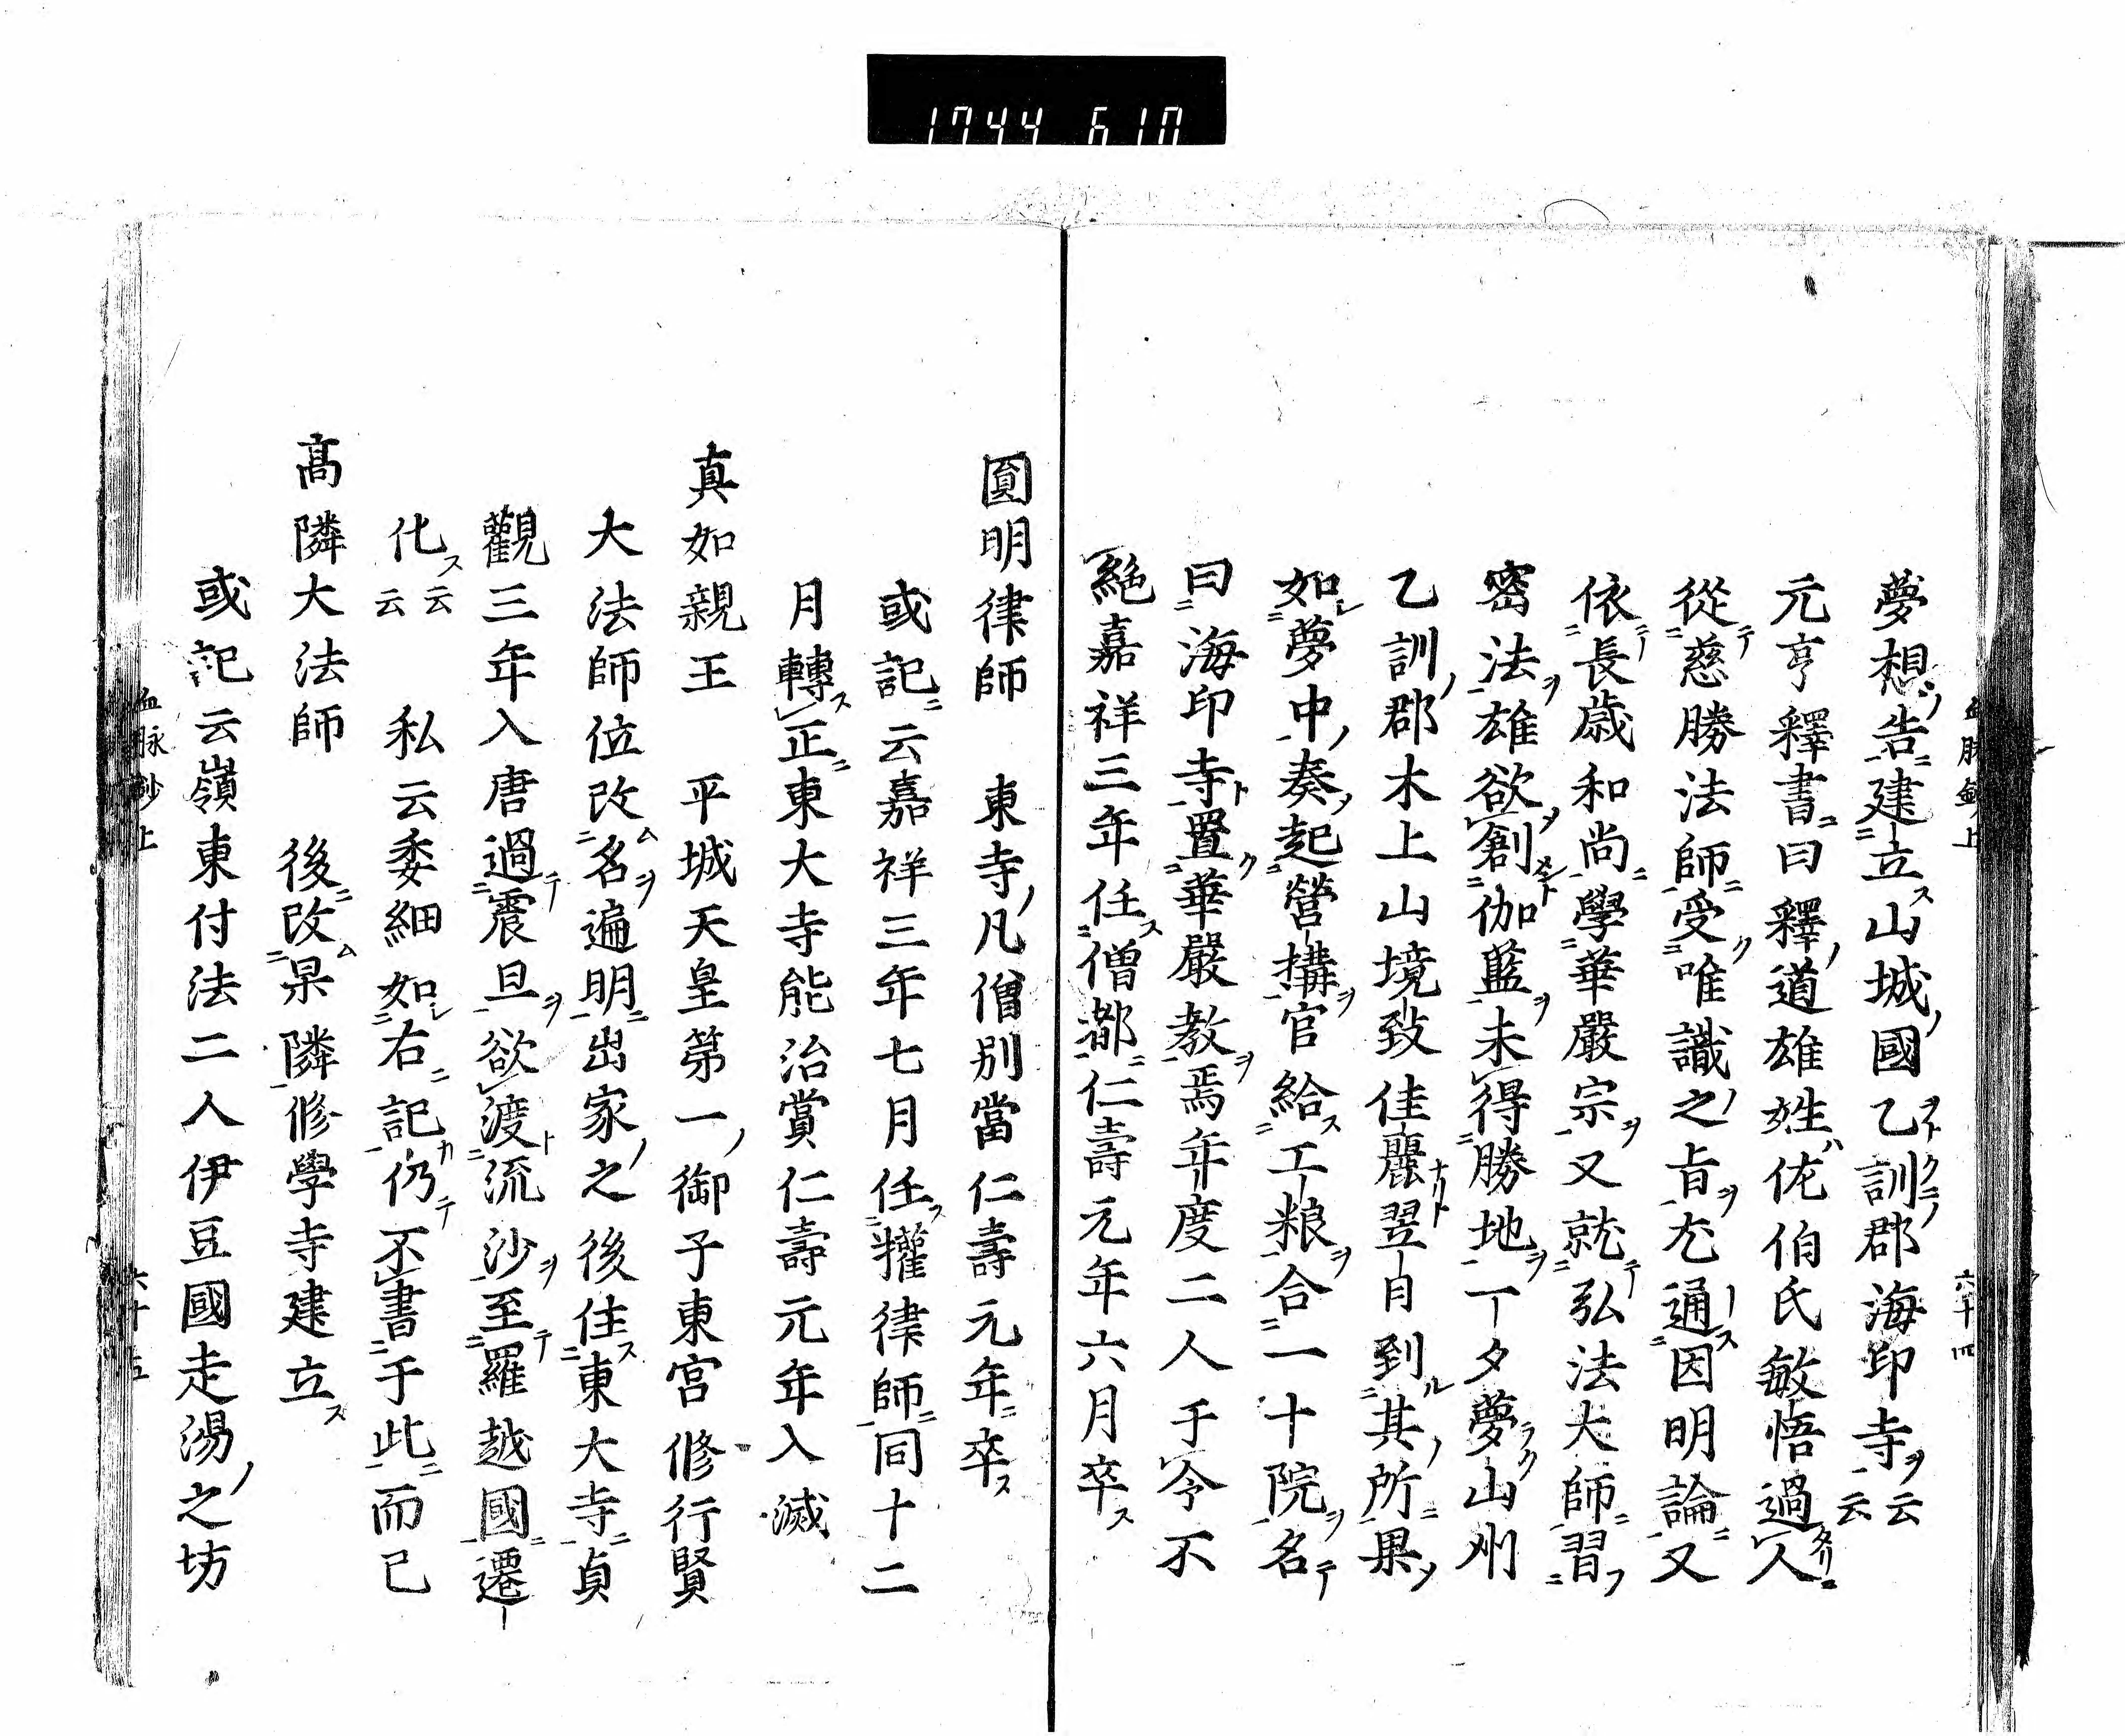 1744 610
血脉鈔上 六十四
夢想告建立山城國乙訓郡海印寺云云
元亨釋書曰釋道雄姓佐伯氏敏悟過人
從慈勝法師受唯識之旨尤通因明論又
依長歳和尚學華嚴宗又就弘法大師習
密法雄欲創伽藍未得勝地一夕夢山州
乙訓郡木上山境致佳麗翌日到其所果
如夢中奏起營構官給工粮合一十院名
曰海印寺置華嚴教焉年度二人于今不
絶嘉祥三年任僧都仁壽元年六月卒
圓明律師 東寺凡僧別當仁壽元年卒
或記云嘉祥三年七月任權律師同十二
月轉正東大寺能治賞仁壽元年入滅
真如親王 平城天皇第一御子東宮修行賢
大法師位改名遍明出家之後住東大寺貞
觀三年入唐過震旦欲渡流沙至羅越國遷
化云云 私云委細如右記仍不書于此而已
髙隣大法師 後改杲隣修學寺建立
或記云嶺東付法二人伊豆國走湯之坊
血脉鈔上 六十五